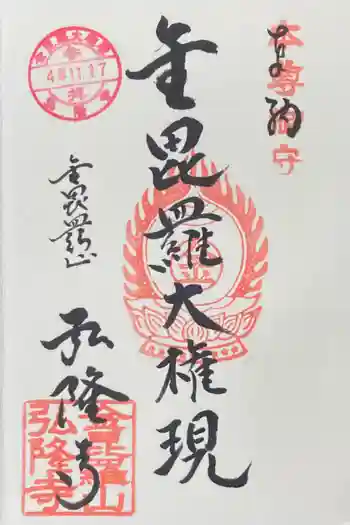 奉納
本尊
守
金毘羅大権現
金毘羅山
弘隆寺
4年11.17
金毘羅山
弘隆寺